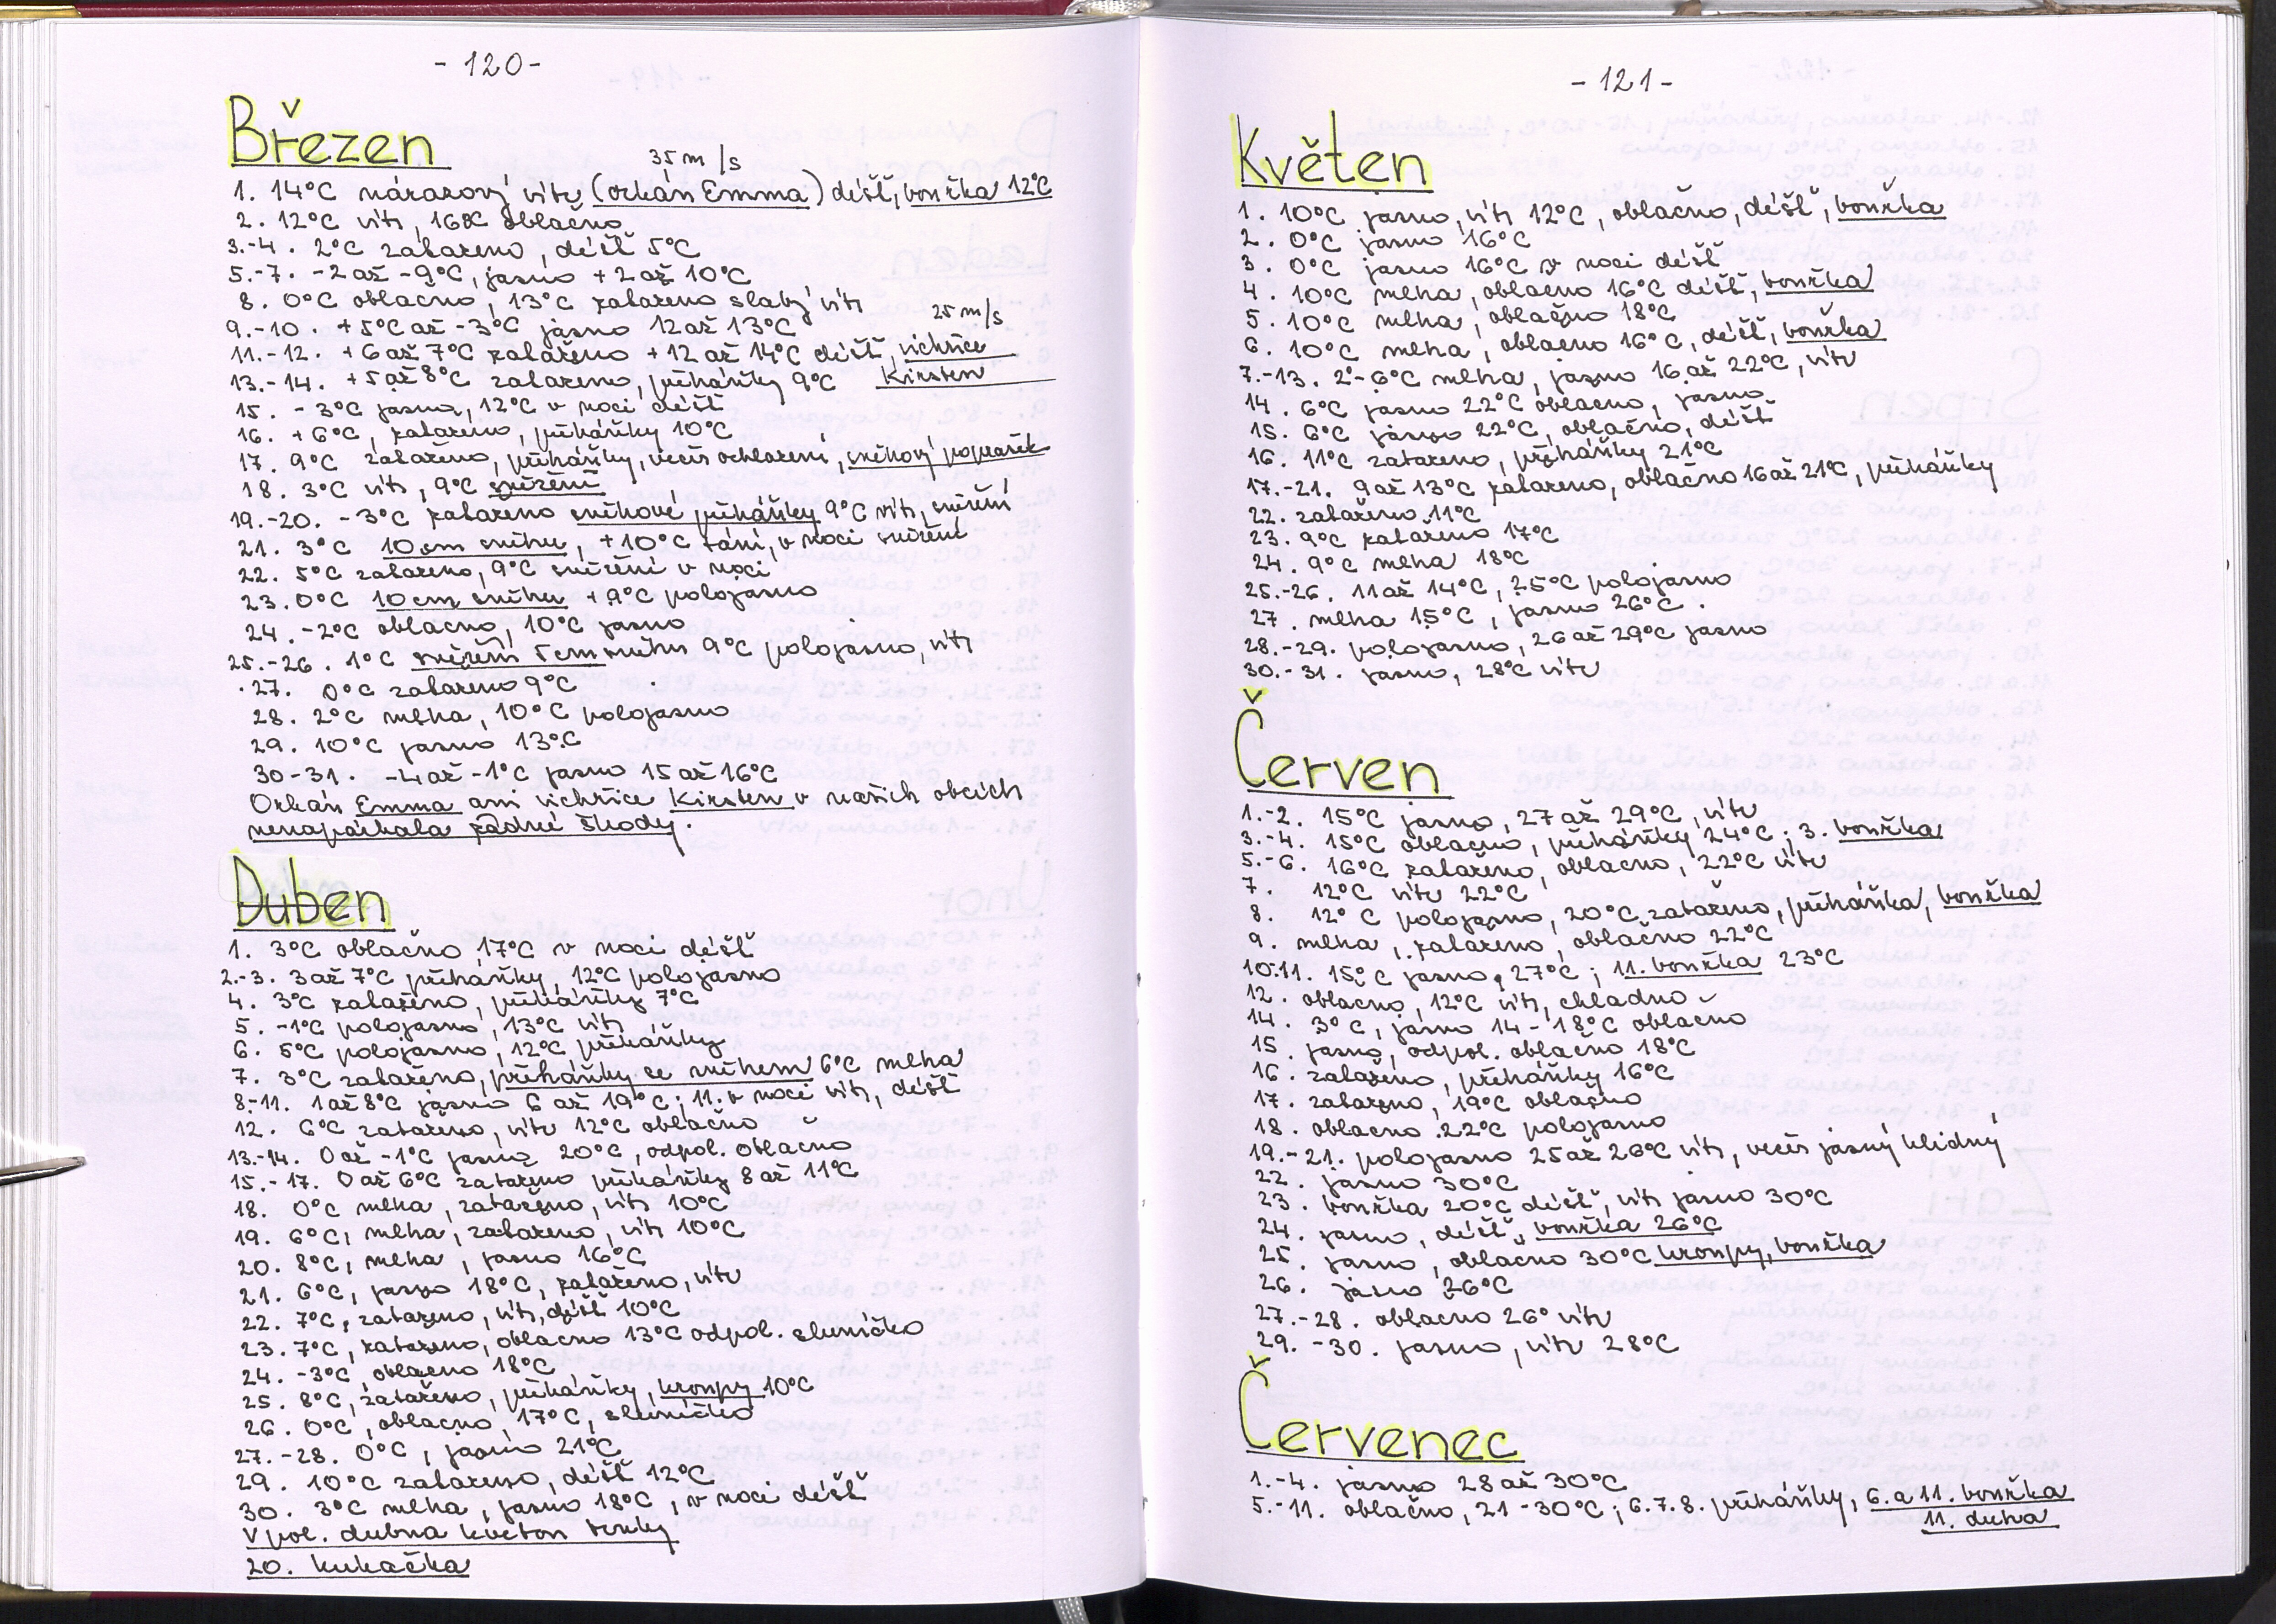 - 120 -
Březen
35 m/s
1. 14°C nárazový vítr (orkán Emma) déšť, bouřka 12°C
2. 12°C vítr, 16°C oblačno
3.-4. 2°C zataženo, déšť 5°C
5.-7. -2 až -9°C, jasno +2 až 10°C
8. 0°C oblačno, 13°C zataženo slabý vítr
25 m/s
9.-10. +5°C až -3°C jasno 12 až 13°C
11.-12. +6 až 7°C zataženo +12 až 14°C déšť, vichřice
13.-14. +5 až 8°C zataženo, přeháňky 9°C Kirsten
15. -3°C jasno, 12°C v noci déšť
16. +6°C, zataženo, přeháňky 10°C
17. 9°C zataženo, přeháňky, večer ochlazení, sněhový poprašek
18. 3°C vítr, 9°C sněžení
19.-20. -3°C zataženo sněhové přeháňky 9°C vítr, sněžení
21. 3°C 10 cm sněhu, +10°C tání, v noci sněžení
22. 5°C zataženo, 9°C sněžení v noci
23. 0°C 10 cm sněhu +9°C polojasno
24. -2°C oblačno, 10°C jasno
25.-26. 1°C sněžení 5 cm sněhu 9°C polojasno, vítr
27. 0°C zataženo 9°C
28. 2°C mlha, 10°C polojasno
29. 10°C jasno 13°C
30-31. -4 až -1°C jasno 15 až 16°C
Orkán Emma ani vichřice Kirsten v našich obcích
nenapáchala žádné škody.
Duben
1. 3°C oblačno 17°C v noci déšť
2.-3. 3 až 7°C přeháňky, 12°C polojasno
4. 3°C zataženo, přeháňky 7°C
5. -1°C polojasno, 13°C vítr
6. 5°C polojasno, 12°C přeháňky
7. 3°C zataženo, přeháňky se sněhem 6°C mlha
8.-11. 1 až 8°C jasno 6 až 19°C; 11. v noci vítr, déšť
12. 6°C zataženo, vítr 12°C oblačno
13.-14. 0 až -1°C jasno 20°C, odpol. oblačno
15.-17. 0 až 6°C zataženo přeháňky 8 až 11°C
18. 0°C mlha, zataženo, vítr 10°C
19. 6°C, mlha, zataženo, vítr 10°C
20. 8°C, mlha, jasno 16°C
21. 6°C, jasno 18°C, zataženo, vítr
22. 7°C, zataženo, vítr, déšť 10°C
23. 7°C, zataženo, oblačno 13°C odpol. sluníčko
24. -3°C, oblačno 18°C
25. 8°C, zataženo, přeháňky, kroupy 10°C
26. 0°C, oblačno 17°C, sluníčko
27.-28. 0°C, jasno 21°C
29. 10°C zataženo, déšť 12°C
30. 3°C mlha, jasno 18°C, v noci déšť
V pol. dubna kvetou
20. kukačka
- 121 -
Květen
1. 10°C jasno, vítr 12°C, oblačno, déšť, bouřka
2. 0°C jasno 16°C
3. 0°C jasno 16°C v noci déšť
4. 10°C mlha, oblačno 16°C déšť, bouřka
5. 10°C mlha, oblačno 18°C
6. 10°C mlha, oblačno 16°C, déšť, bouřka
7.-13. 2°-6°C mlha, jasno 16 až 22°C, vítr
14. 6°C jasno 22°C oblačno, jasno
15. 6°C jasno 22°C, oblačno, déšť
16. 11°C zataženo, přeháňky 21°C
17.-21. 9 až 13°C zataženo, oblačno 16 až 21°C, přeháňky
22. zataženo 11°C
23. 9°C zataženo 17°C
24. 9°C mlha 18°C
25.-26. 11 až 14°C, 25°C polojasno
27. mlha 15°C, jasno 26°C.
28.-29. polojasno, 26 až 29°C jasno
30.-31. jasno, 28°C vítr
Červen
1.-2. 15°C jasno, 27 až 29°C, vítr
3.-4. 15°C oblačno, přeháňky 24°C; 3. bouřka
5.-6. 16°C zataženo, oblačno, 22°C vítr
7. 12°C vítr 22°C
8. 12°C polojasno, 20°C, zataženo, přeháňka, bouřka
9. mlha, zataženo, oblačno 22°C
10.11. 15°C jasno, 27°C; 11. bouřka 23°C
12. oblačno, 12°C vítr, chladno
14. 3°C, jasno 14-18°C oblačno
15. jasno, odpol. oblačno 18°C
16. zataženo, přeháňky 16°C
17. zataženo, 19°C oblačno
18. oblačno 22°C polojasno
19.-21. polojasno 25 až 26°C vítr, večer jasný klidný
22. jasno 30°C
23. bouřka 20°C déšť, vítr jasno 30°C
24. jasno, déšť, bouřka 26°C
25. jasno, oblačno 30°C kroupy, bouřka
26. jasno 26°C
27.-28. oblačno 26° vítr
29.-30. jasno, vítr 28°C
Červenec
1.-4. jasno 28 až 30°C
5.-11. oblačno, 21-30°C; 6.7.8. přeháňky, 6. a 11. bouřka
11. duha